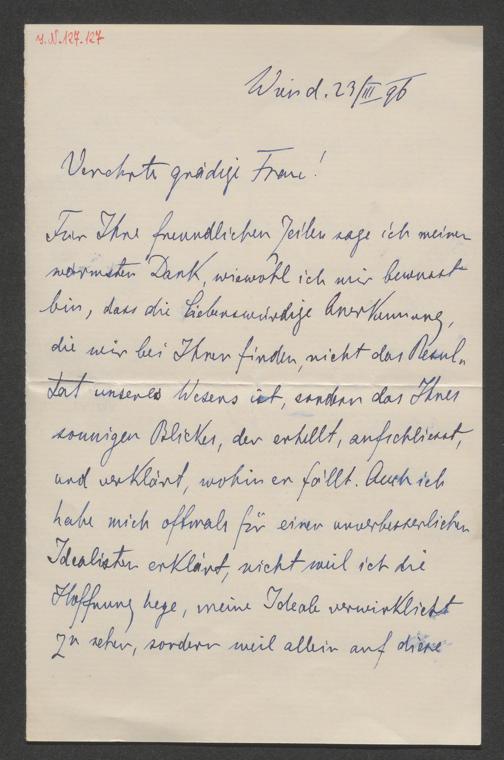 I.N. 127.127
Wien d. 23/III 96
Verehrte gnädige Frau!
Für Ihre freundlichen Zeilen sage ich meinen
wärmsten Dank, wiewohl ich mir bewusst
bin, dass die liebenswürdige Anerkennung,
die wir bei Ihnen finden, nicht das Resul-
tat unseres Wesens ist, sondern das Ihres
sonnigen Blickes, der erhellt, aufschliesst,
und verklärt, wohin er fällt. Auch ich
habe mich oftmals für einen unverbesserlichen
Idealisten erklärt, nicht weil ich die
Hoffnung hege, meine Ideale verwirklicht
zu sehen, sondern weil allein auf diese